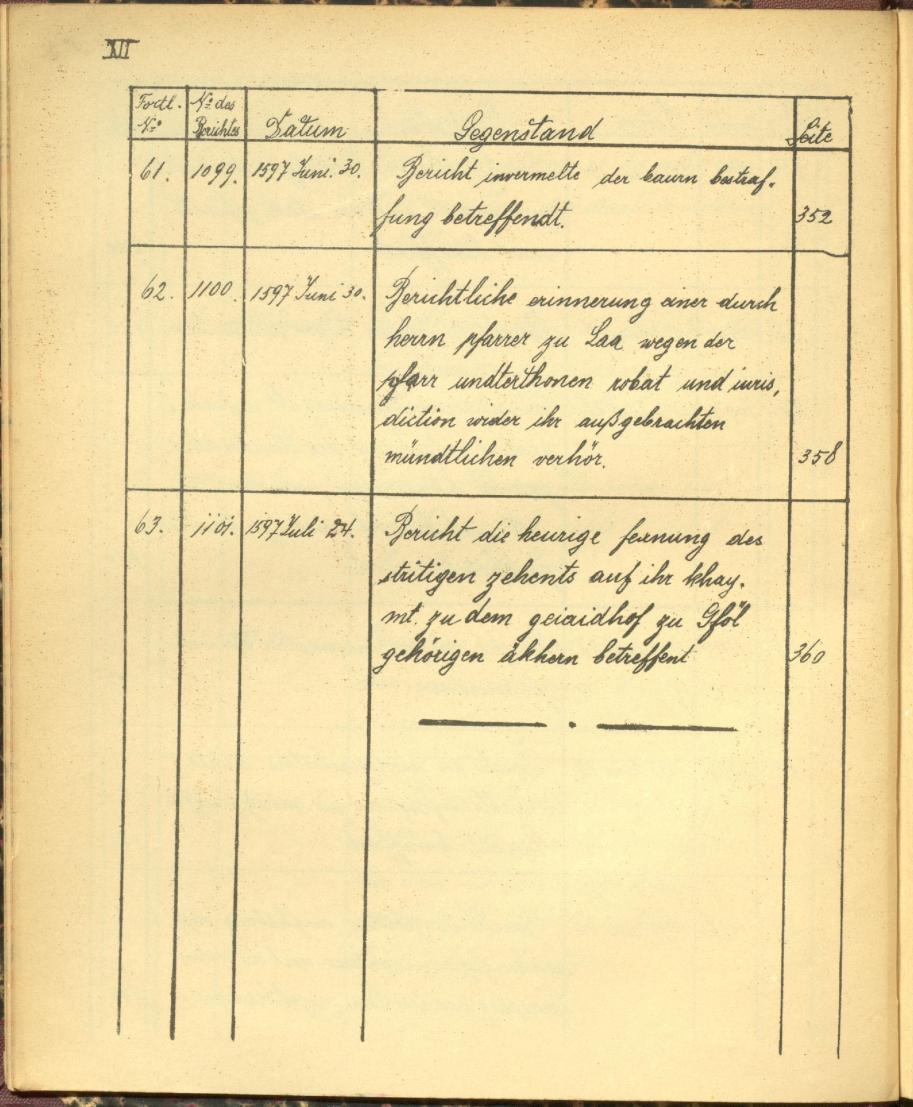 XII
Fortl. No des
No Berichtes Datum Gegenstand Seite
61. 1099. 1597 Juni. 30. Bericht invermelte der baurn bestraf-
fung betreffendt. 352
62. 1100. 1597 Juni 30. Berichtliche erinnerung einer durch
herrn pfarrer zu Laa wegen der
pfarr undterthonen robat und iuris,
diction wider ihr außgebrachten
mündtlichen verhör. 358
63. 1101. 1597 Juli 24. Bericht die heurige fexnung des
stritigen zehents auf ihr khay.
mt. zu dem geiaidhof zu Gföl
gehörigen äkhern betreffent 360